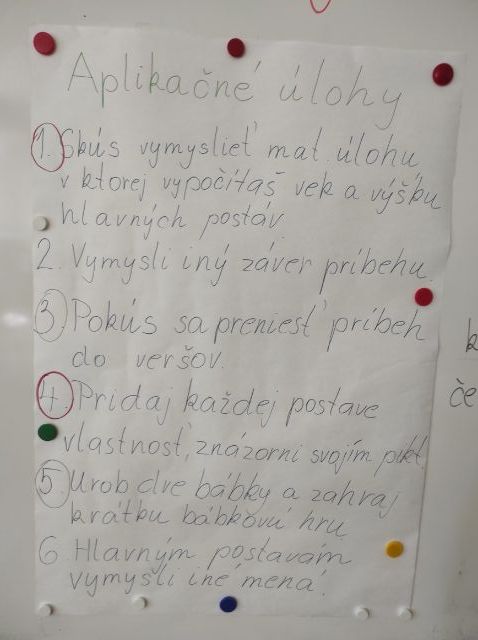 Aplikačné úlohy
1. Skús vymyslieť mat. úlohu
v ktorej vypočítaš vek a výšku
hlavných postáv.
2. Vymysli iný záver príbehu.
3. Pokús sa preniesť príbeh
do veršov.
4. Pridaj každej postave
vlastnosť, znázorni svojím pikt.
5. Urob dve bábky a zahraj
krátku bábkovú hru
6. Hlavným postavám
vymysli iné mená.
k
če